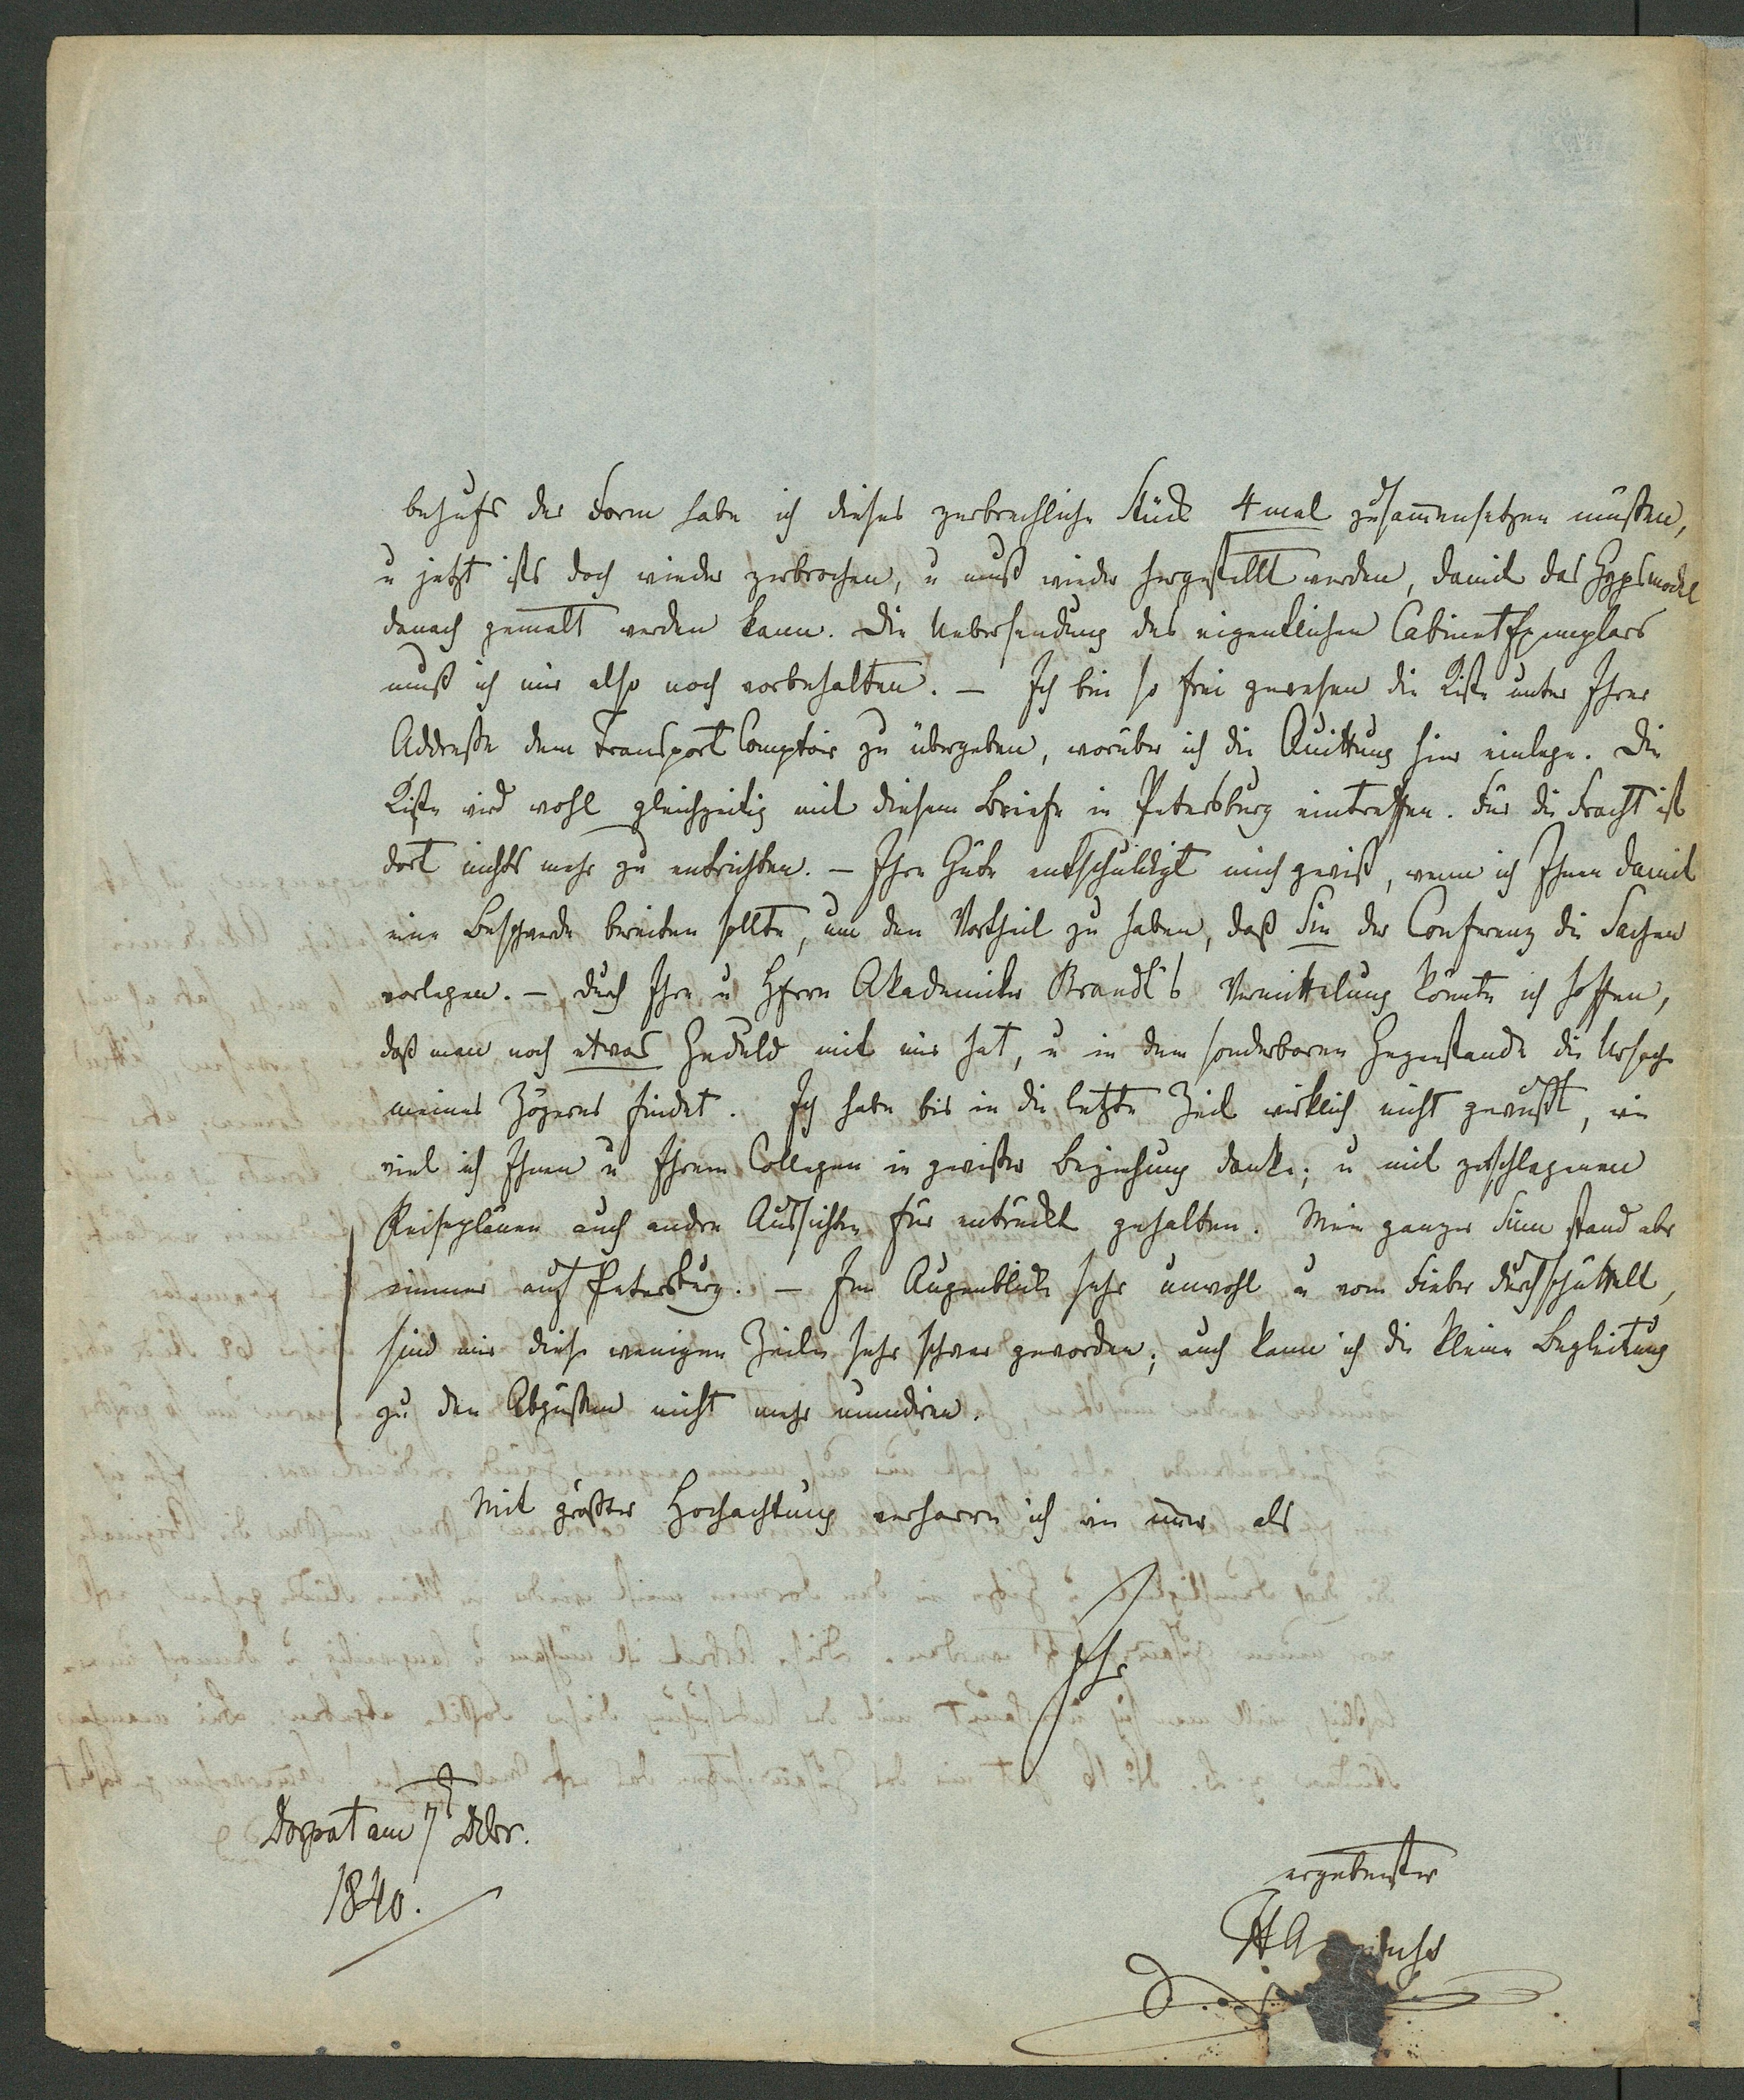 behufs der Form habe ich dieses zerbrechliche Stück 4 mal zusam̄ensetzen müßen,
u jetzt ists doch wieder zerbrochen, u muß wieder hergestellt werden, damit das Gypsmodel
danach gemalt werden kann. Die Uebersendung des eigentlichen Cabinet Exemplars
muß ich mir also noch vorbehalten. — Ich bin so frei gewesen die Kiste unter Ihrer
Addreße dem Transport Comptoir zu übergeben, worüber ich die Quittung hier einlege. Die
Kiste wird wohl gleichzeitig mit diesem Briefe in Petersburg eintreffen. Für die Fracht ist
dort nichts mehr zu entrichten. — Ihre Güte entschuldigt mich gewiß, wenn ich Ihnen damit
eine Beschwerde bereiten sollte, um den Vortheil zu haben, daß Sie der Conferenz die Sachen
vorlegen. — Durch Ihre u Herrn Akademiker Brandt's Vermittelung könnte ich hoffen,
daß man noch etwas Geduld mit mir hat, u in dem sonderbaren Gegenstande die Ursache
meines Zögerns findet. Ich habe bis in die letzte Zeit wirklich nicht gewußt, wie
viel ich Ihnen u Ihrem Collegen in gewißer Beziehung danke; u mit zerschlagenen
Reiseplänen auch andre Aussichten für entrückt gehalten. Mein ganzer Sinn stand aber
immer auf Petersburg. — Im Augenblicke sehr unwohl u vom Fieber durchschüttelt,
sind mir diese wenigen Zeilen sehr schwer geworden; auch kann ich die kleine Begleitung
zu den Abgüßen nicht mehr mundiren.
Mit größter Hochachtung verharre ich wie im̄er als
Ihr
Dorpat am 7t Dcbr.
1840.
ergebenster